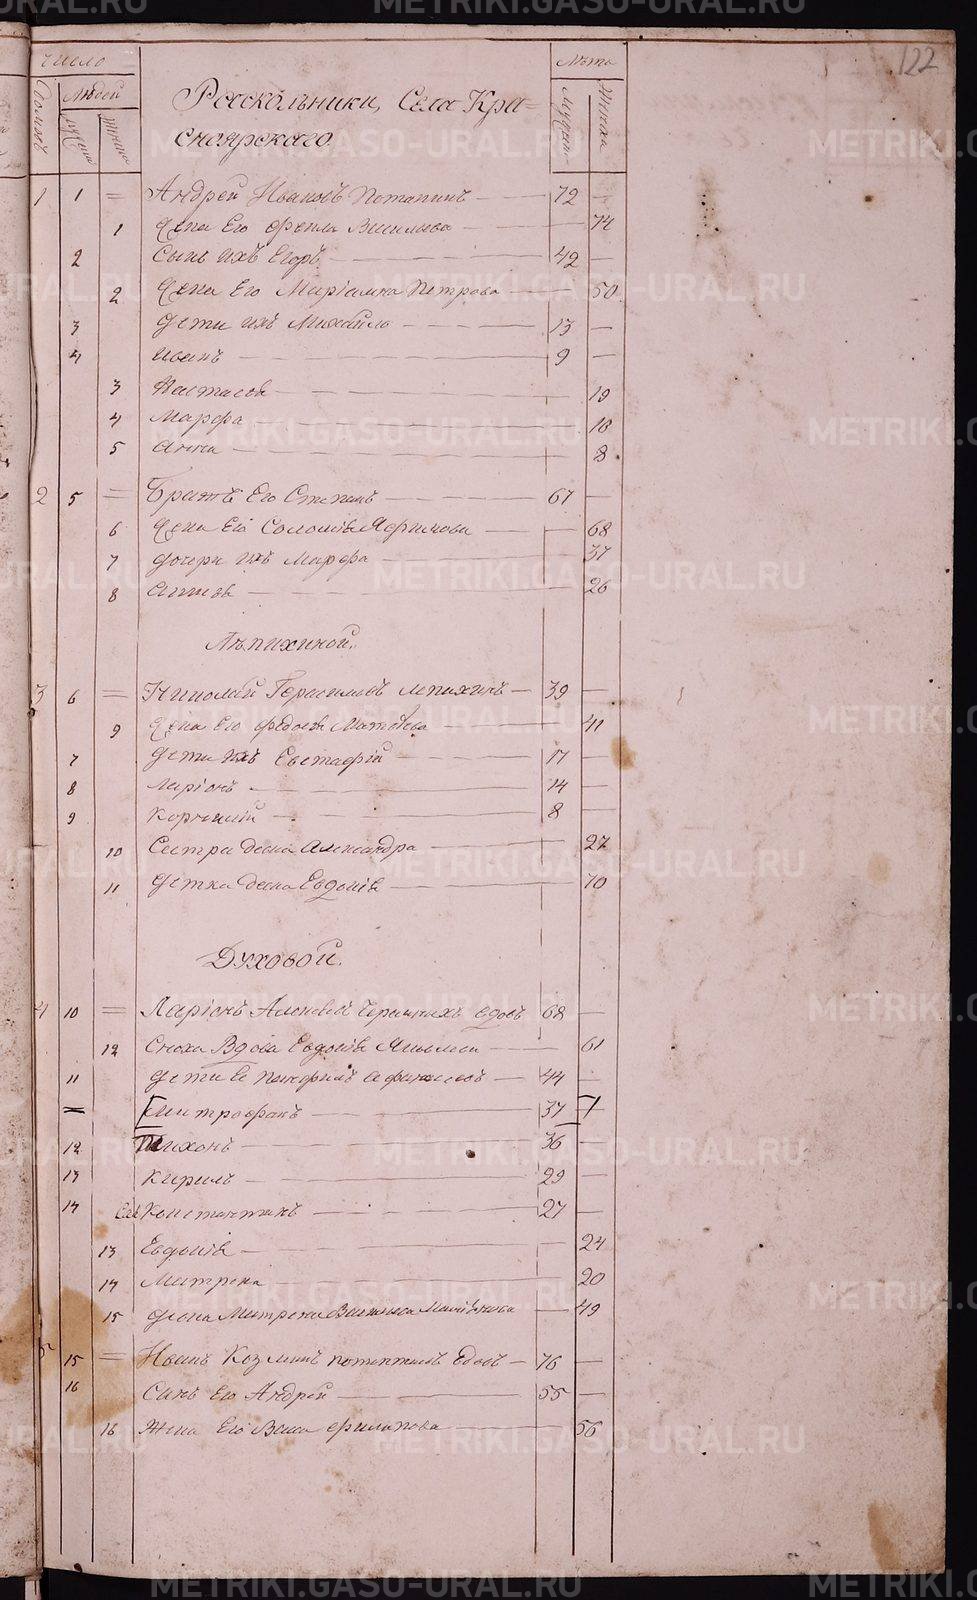 122
Число
Домовъ
Людей
Лѣта
Раскольники, Села Кра=
сноярскаго.
1 1 = Андрей Ивановъ Потапинъ — 72 —
1 Жена Его Васильева — 74
2 Сынъ ихъ Егоръ — 42 —
2 Жена Его Маріамна Петрова — 50
3 Дети ихъ Михайло — 13 —
4 Иванъ — 9 —
3 Настасья — 19
4 Марфа — 18
5 Анна — 8
2 5 = Братъ Его Степанъ — 67 —
6 Жена Его Соломія — 68
7 Дочери ихъ Марфа — 37
8 — 26
Лѣпихиной.
3 6 = Николай Герасимовъ Лепихинъ — 39 —
9 Жена Его Федосья Матвѣева — 41
7 Дети ихъ Евстафій — 17 —
8 Ларіонъ — 14 —
9 Корнилій — 8 —
10 Сестра Александра — 27
11 Тетка Евдокія — 70
Духовой.
4 10 = Ларіонъ вдовъ 68 —
12 Сноха Вдова Евдокія — 61
11 Дети Ея — 44 —
= Митрофанъ — 37
12 Тихонъ — 36 —
13 Кирилъ — 29 —
14 Константинъ — 27 —
13 Евдокія — 24
14 Матрена — 20
15 Жена — 49
5 15 = Иванъ Козминъ Вдовъ — 76 —
16 Сынъ Его Андрей — 55 —
16 Жена Его Васса Филипова — 56
METRIKI.GASO-URAL.RU